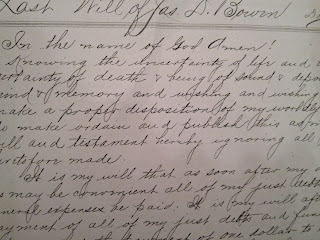 Last Will of Jas D. Bowin
In the name of God Amen!
Knowing the uncertainty of life and
certainty of death & being of sound &
mind & memory and wishing and wishing
make a proper disposition of my
to make ordain and publish this as my
will and testament hereby ignoring all
heretofore made.
It is my will that as soon after my
as may be convenient all of my just debts
funeral expenses be paid. It is my will
payment of all of my just debts and
of one dollar to